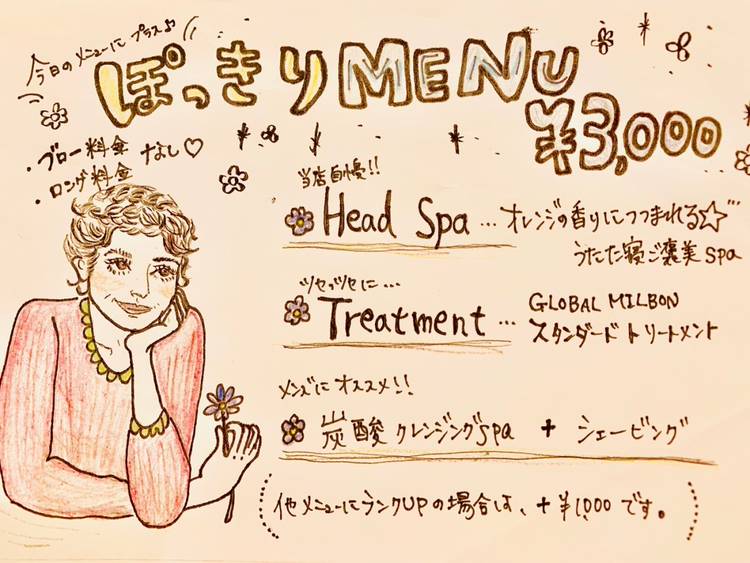 今日のメニューにプラス♪
ぽっきりMENU
¥3,000
・ブロー料金
・ロング料金
なし♡
当店自慢!!
Head Spa … オレンジの香りにつつまれる☆
うたた寝ご褒美spa
ツヤッツヤに…
Treatment … GLOBAL MILBON
スタンダードトリートメント
メンズにオススメ!!
炭酸クレンジングspa + シェービング
(他メニューにランクUPの場合は、+¥1,000です。)